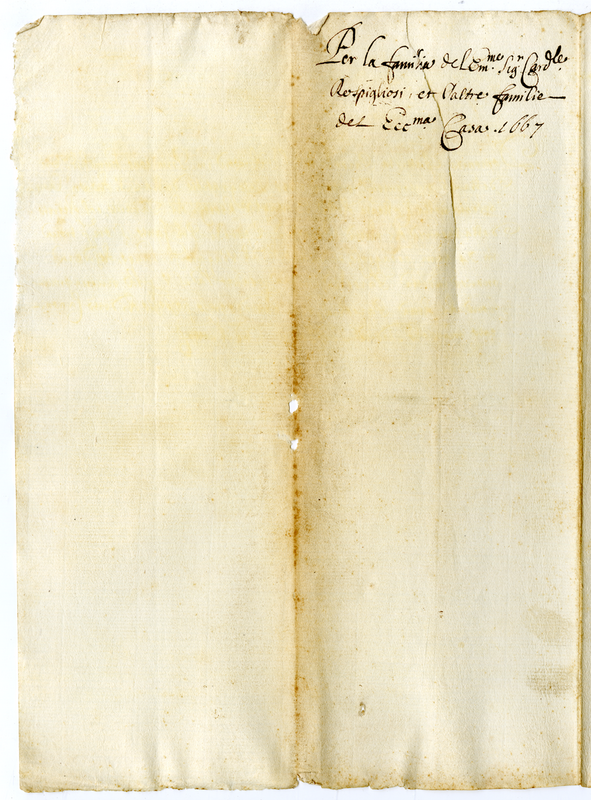 Per la famiglia del Em.me Sig.r Card.le
Rospigliosi, et l'altre familie
del Ecc.ma Casa. 1667